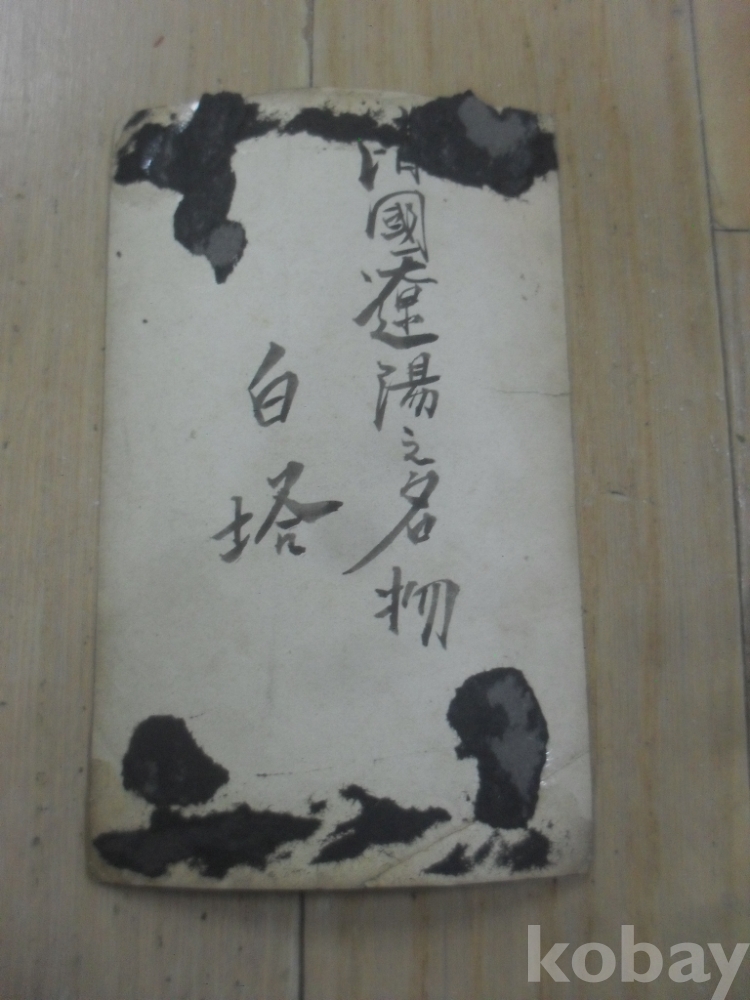 清國遼陽之名物
白塔
kobay